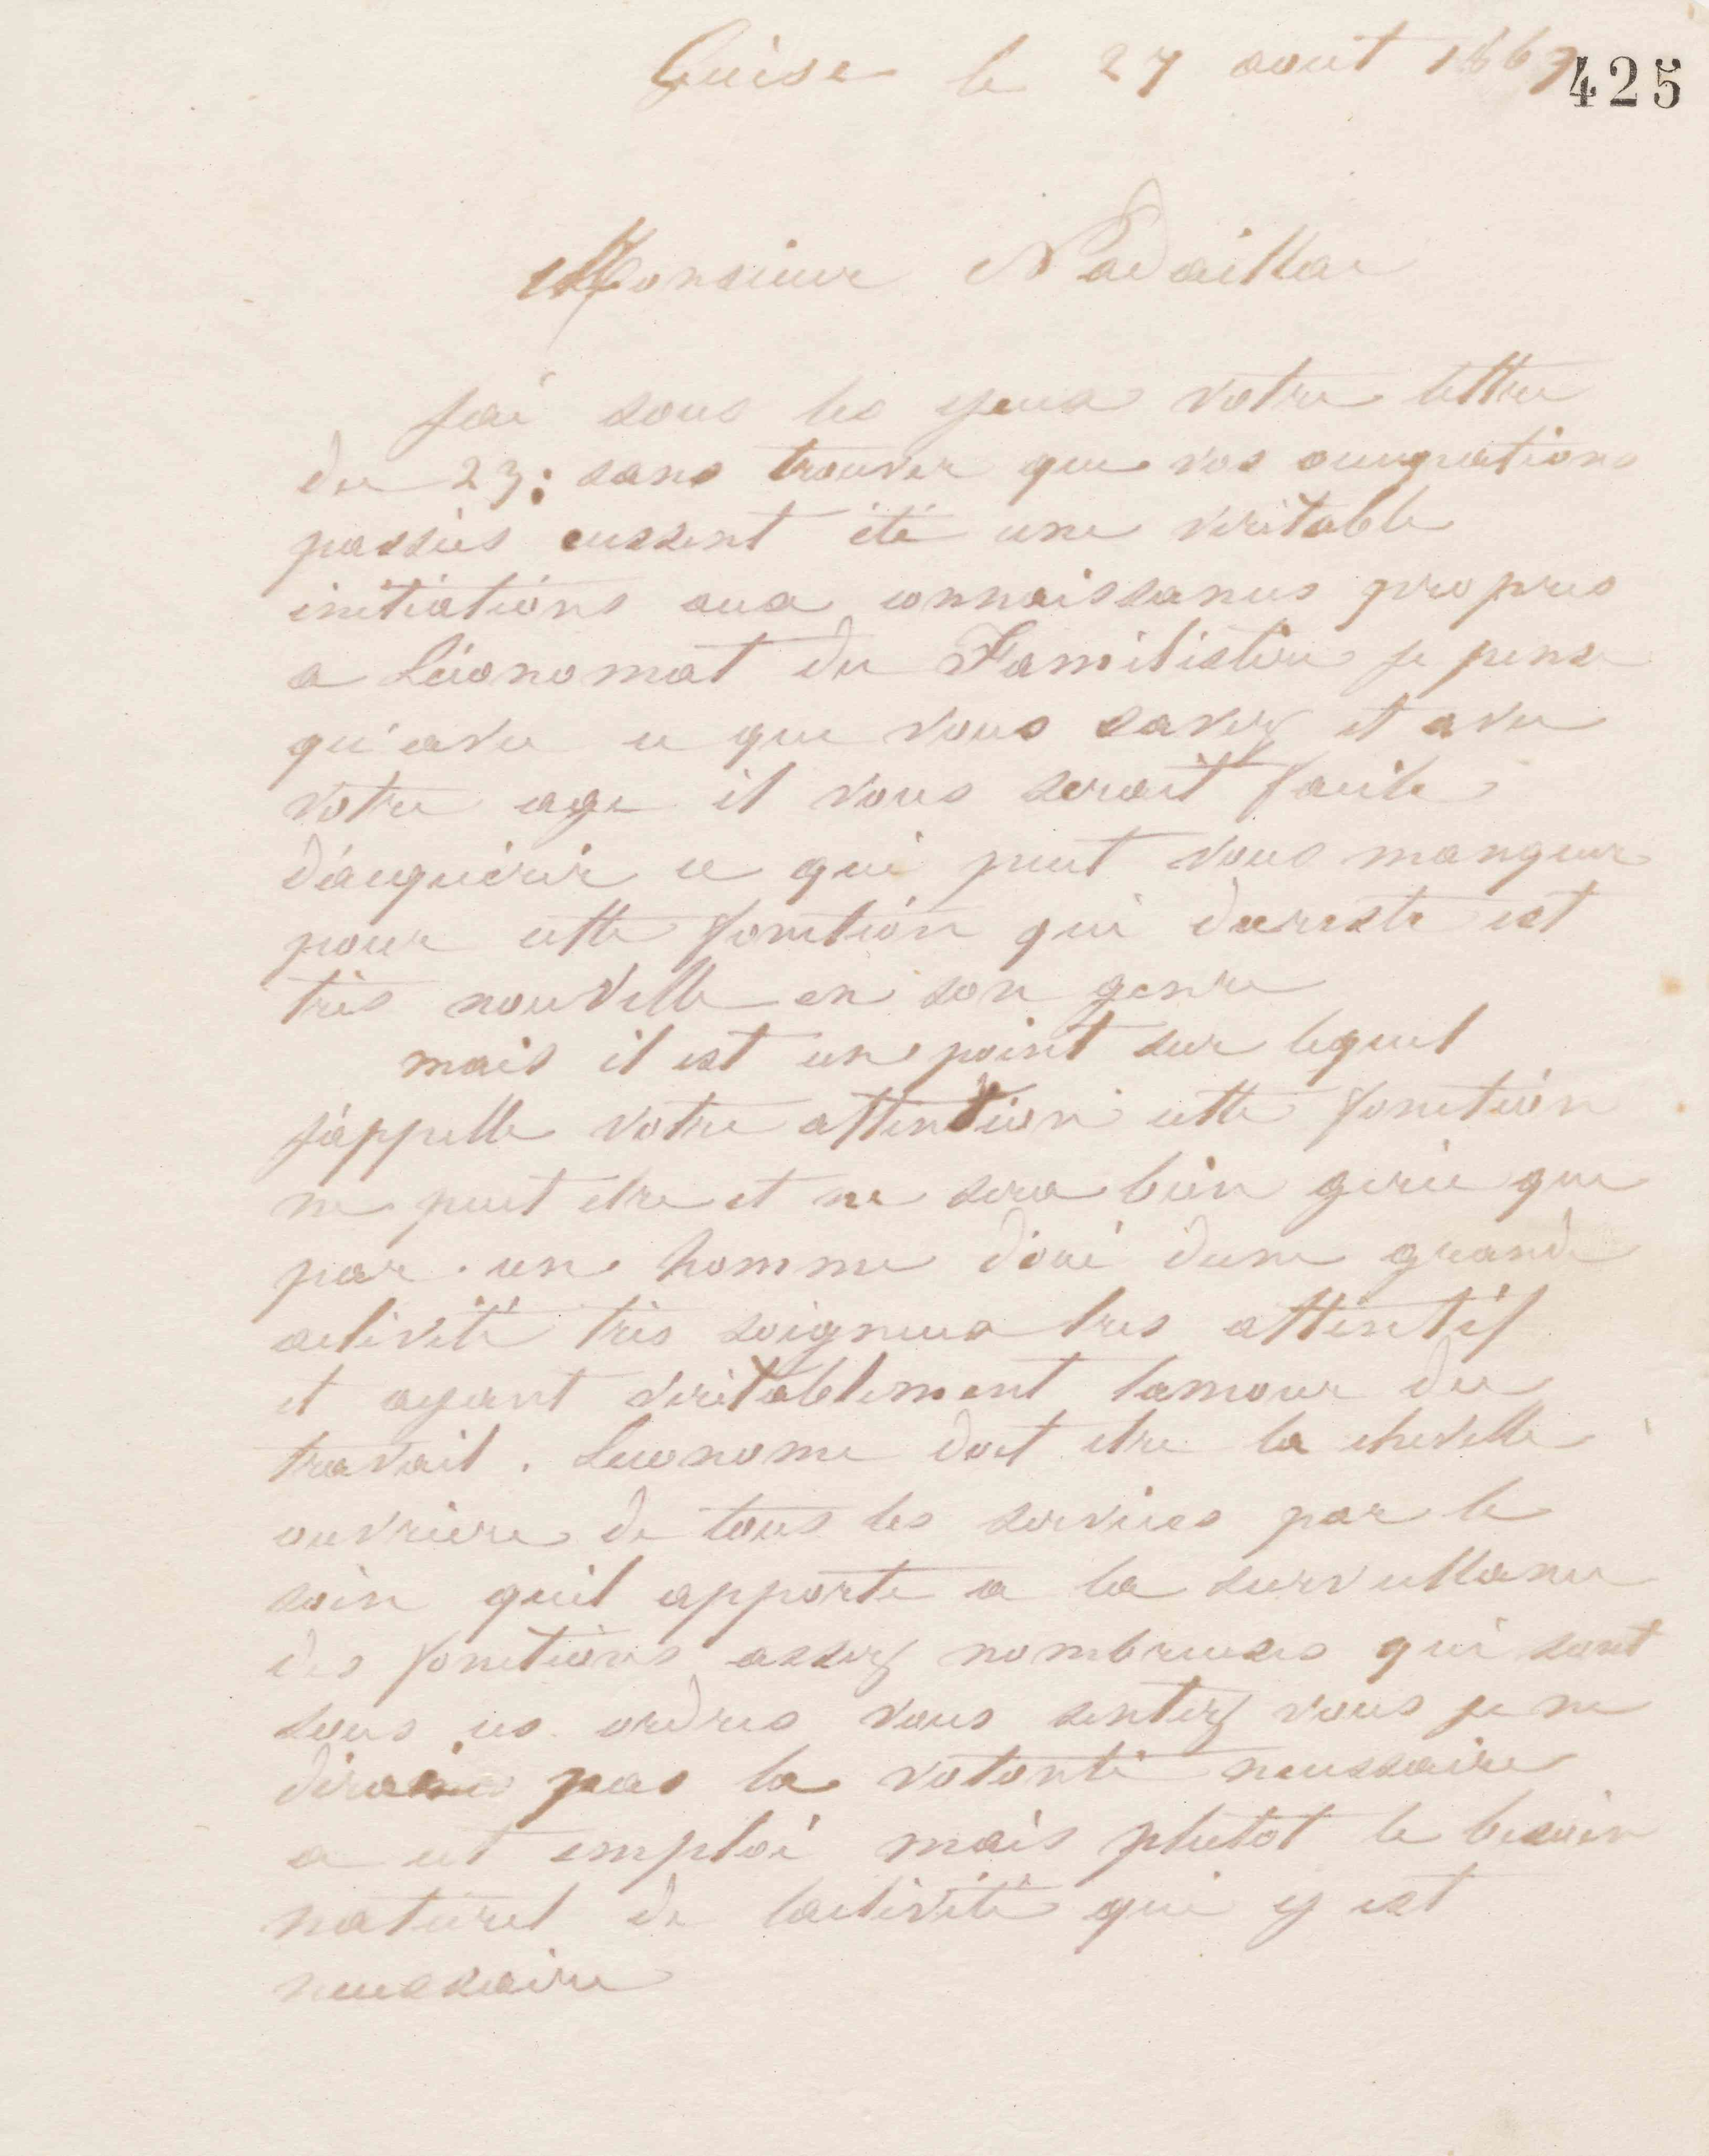 Guise le 27 aout 1863
425
Monsieur Nadaillac
J'ai sous les yeux votre lettre
du 23: sans trouver que vos occupations
passées eussent été une veritable
initiations aux connaissances propres
a Léconomat du Familistère je pense
qu'avec ce que vous savez et avec
votre age il vous serait facile
d'acquérir ce qui peut vous manquer
pour cette fonction qui dureste est
très nouvelle en son genre
mais il est un point sur lequel
j'appelle votre attention cette fonction
ne peut etre et ne sera bien gerée que
par un homme doué dune grande
activité très soigneux tres attentif
et ayant veritablement lamour du
travail. Leconome doit etre la cheville
ouvriere de tous les services par le
soin quil apporte a la surveillance
des fonctions assez nombreuses qui sont
sous ces ordres vous sentez vous je ne
dirais pas la volonté necessaire
a cet emploi mais plutot le besoin
naturel de lactivité qui y est
necessaire